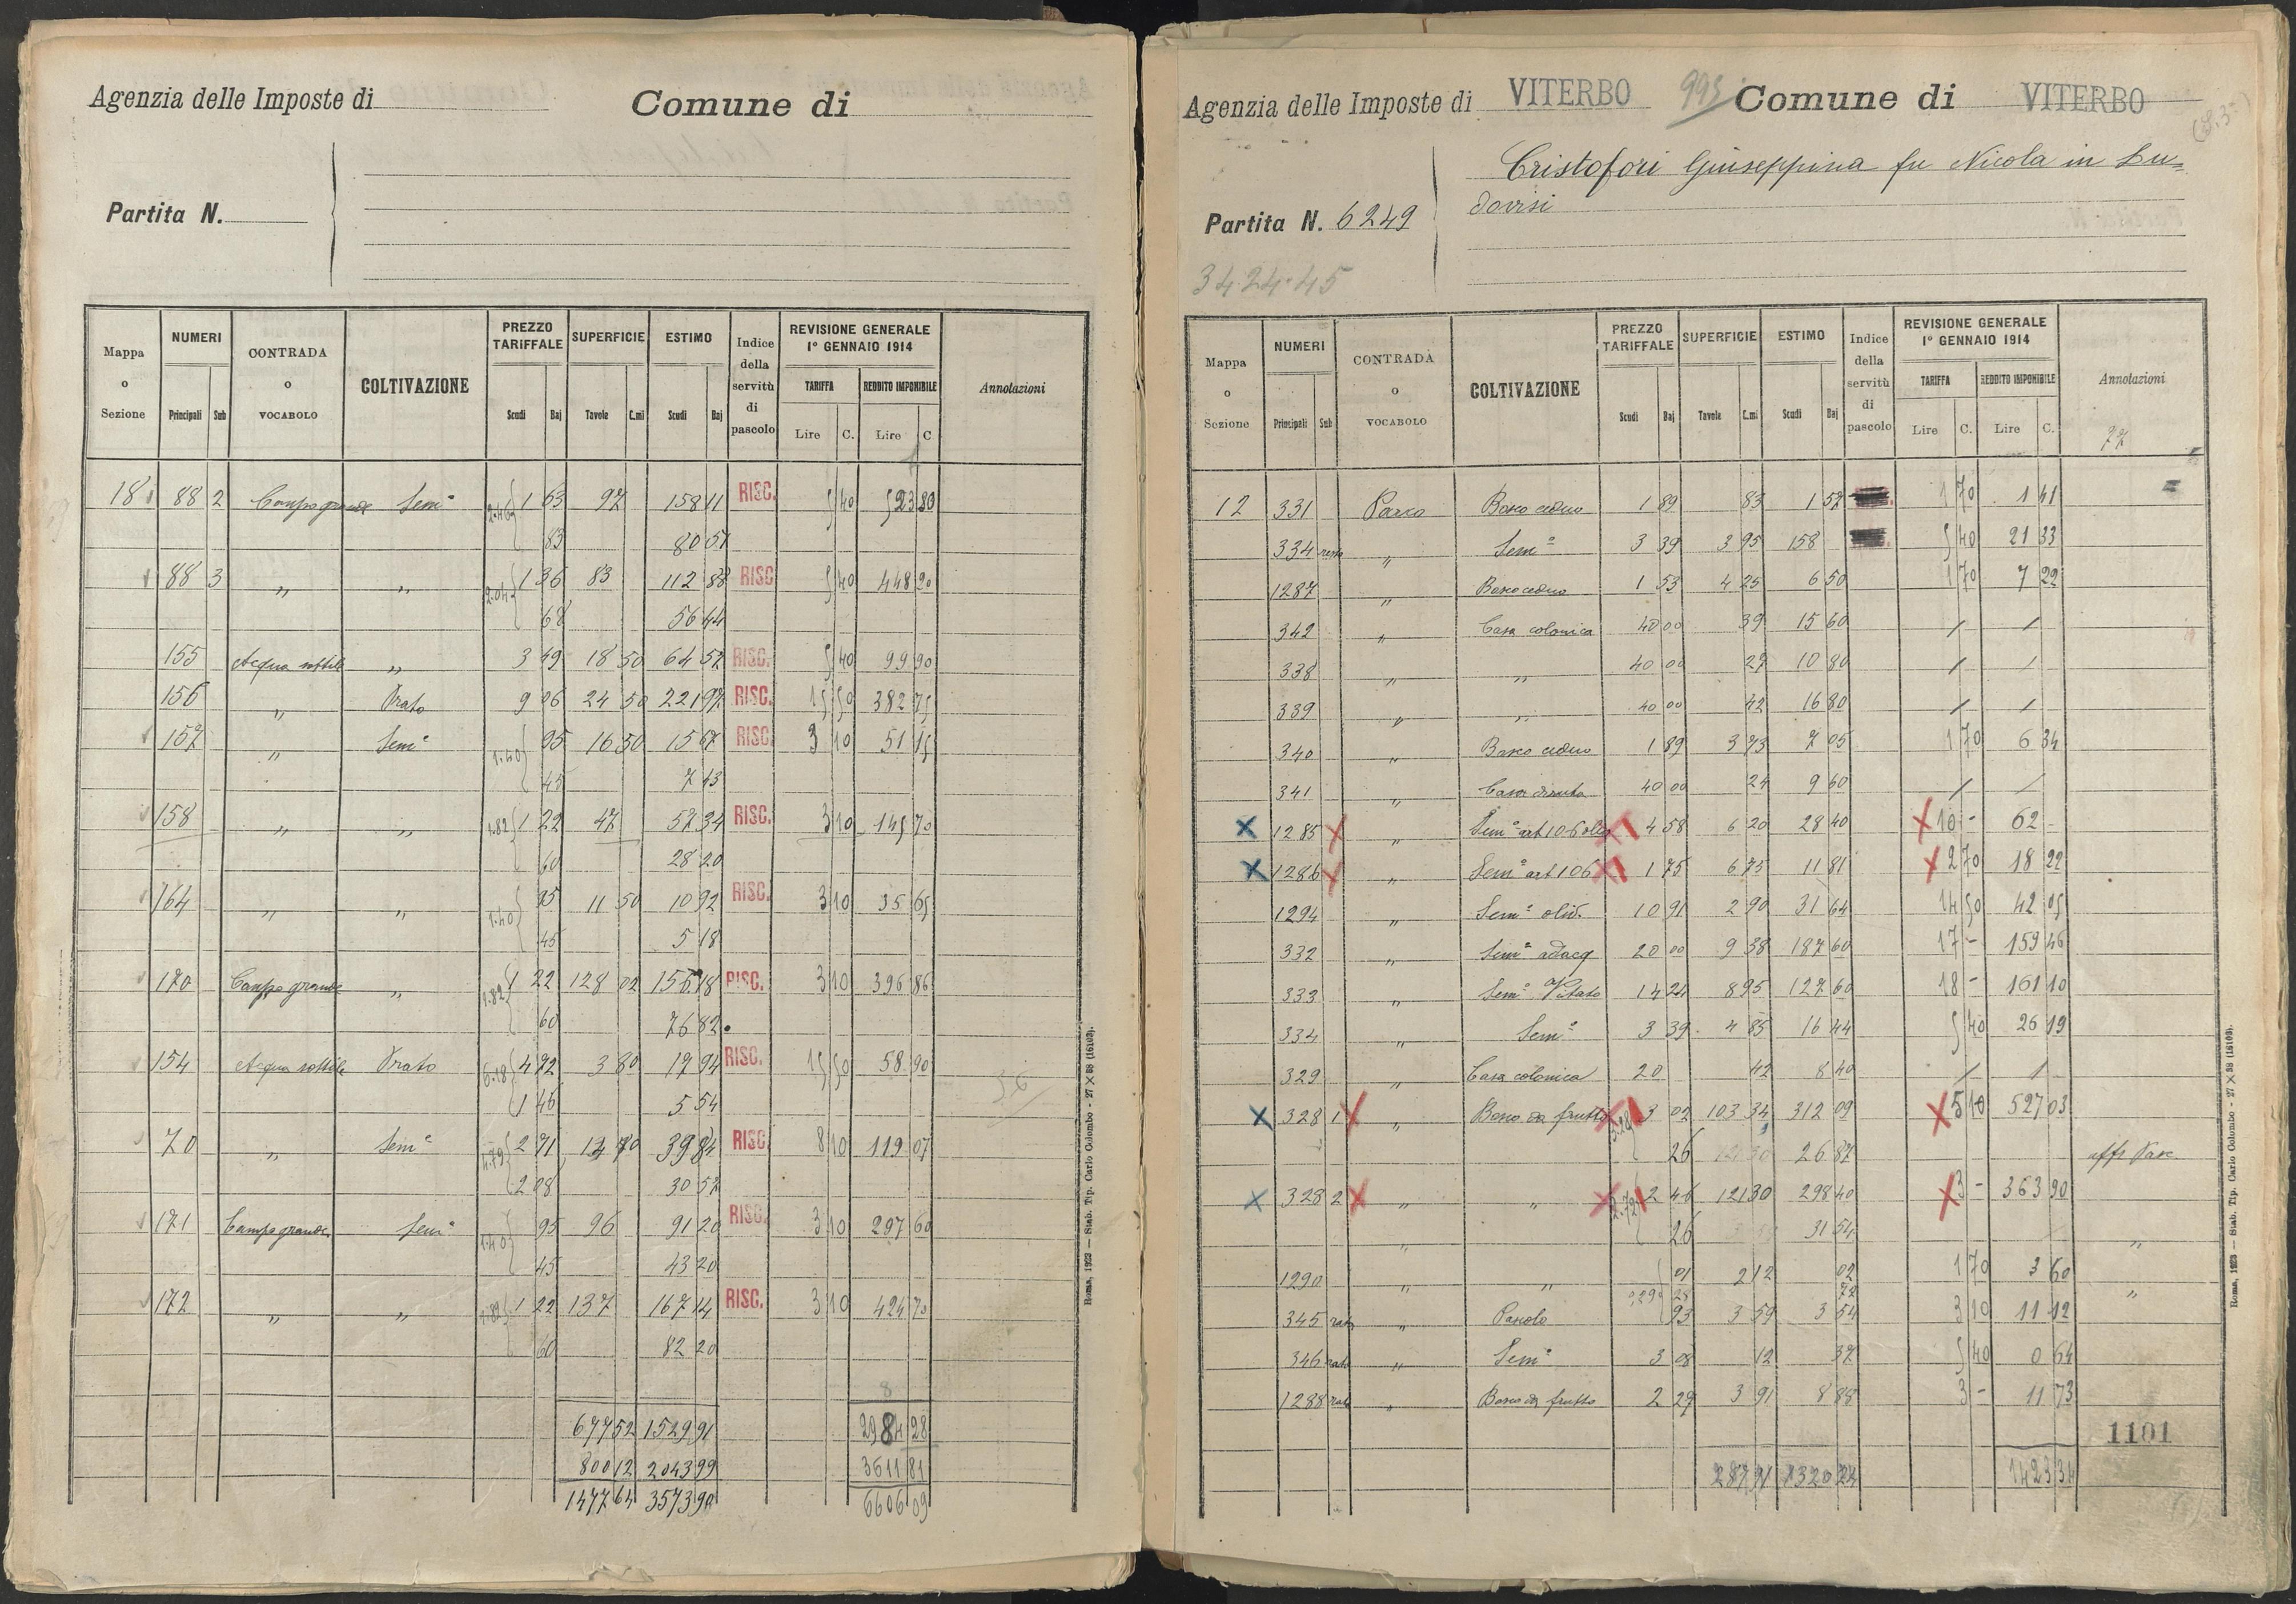 Agenzia delle Imposte di Comune di
Partita N.
Mappa o Sezione NUMERI Principali Sub CONTRADA o VOCABOLO COLTIVAZIONE PREZZO TARIFFALE Scudi Baj SUPERFICIE Tavole C.mi ESTIMO Scudi Baj Indice della servitù di pascolo REVISIONE GENERALE 1° GENNAIO 1914 TARIFFA Lire C. REDDITO IMPONIBILE Lire C. Annotazioni
18 88 2 Campo grande Sem° 2.46 1 63 97 158 11 RISC. 5 40 523 80
83 80 51
88 3 " " 2.04 1 36 83 112 88 RISC. 5 40 448 20
68 56 44
155 Acqua sottile " 3 49 18 50 64 57 RISC. 5 40 99 90
156 " Prato 9 06 24 50 221 97 RISC. 15 50 382 75
157 " Sem° 1.40 95 16 50 15 67 RISC. 3 10 51 15
45 7 43
158 " " 1.82 1 22 47 57 34 RISC. 3 10 145 70
60 28 20
164 " " 1.40 95 11 50 10 92 RISC. 3 10 35 65
45 5 18
170 Campo grande " 1.82 1 22 128 02 156 18 RISC. 3 10 396 86
60 76 82
154 Acqua sottile Prato 6.18 4 72 3 80 17 94 RISC. 15 50 58 90
1 46 5 54
70 " Sem° 4.79 2 71 14 70 39 84 RISC. 8 10 119 07
2 08 30 57
171 Campo grande Sem° 1.40 95 96 91 20 RISC. 3 10 297 60
45 43 20
172 " " 1.82 1 22 137 167 14 RISC. 3 10 424 70
60 82 20
677 52 1529 91 2984 28
800 12 2043 99 3611 81
1477 64 3573 90 6606 09
Roma, 1923 — Stab. Tip. Carlo Colombo - 27 × 38 (16103).
Agenzia delle Imposte di VITERBO 995 Comune di VITERBO
Cristofori Giuseppina fu Nicola in Lu=
dovisi
Partita N. 6249
3424.45
Mappa o Sezione NUMERI Principali Sub CONTRADA o VOCABOLO COLTIVAZIONE PREZZO TARIFFALE Scudi Baj SUPERFICIE Tavole C.mi ESTIMO Scudi Baj Indice della servitù di pascolo REVISIONE GENERALE 1° GENNAIO 1914 TARIFFA Lire C. REDDITO IMPONIBILE Lire C. Annotazioni
77
12 331 Parco Bosco ceduo 1 89 83 1 57 1 70 1 41
334 resto " Sem° 3 39 3 95 158 5 40 21 33
1287 " Bosco ceduo 1 53 4 25 6 50 1 70 7 22
342 " Casa colonica 40 00 39 15 60 / /
338 " " 40 00 27 10 80 / /
339 " " 40 00 42 16 80 / /
340 " Bosco ceduo 1 89 3 73 7 05 1 70 6 34
341 " Casa diruta 40 00 24 9 60 / /
1285 " Sem° art 106 oliv 4 58 6 20 28 40 10 - 62 -
1286 " Sem° art 106 1 75 6 75 11 81 2 70 18 22
1294 " Sem° oliv. 10 91 2 90 31 64 14 50 42 05
332 " Sem° adacq 20 00 9 38 187 60 17 - 159 46
333 " Sem° Vitato 14 24 8 95 127 60 18 - 161 10
334 " Sem° 3 39 4 85 16 44 5 40 26 19
329 Casa colonica 20 42 8 40 / /
328 1 " Bosco da frutto 3.28 3 02 103 34 312 09 5 10 527 03
26 26 87 affr Pasc
328 2 " " 2.72 2 46 121 30 298 40 3 - 363 90
26 31 54
" "
1290 " " 01 2 12 02 1 70 3 60
0.29 28 72 "
345 rata " Pascolo 93 3 59 3 54 3 10 11 12
346 rata " Sem° 3 08 12 37 5 40 0 64
1288 rata " Bosco da frutto 2 27 3 91 8 88 3 - 11 73
1101
287 91 1320 24 1423 34
Roma, 1923 — Stab. Tip. Carlo Colombo - 27 × 38 (16103).